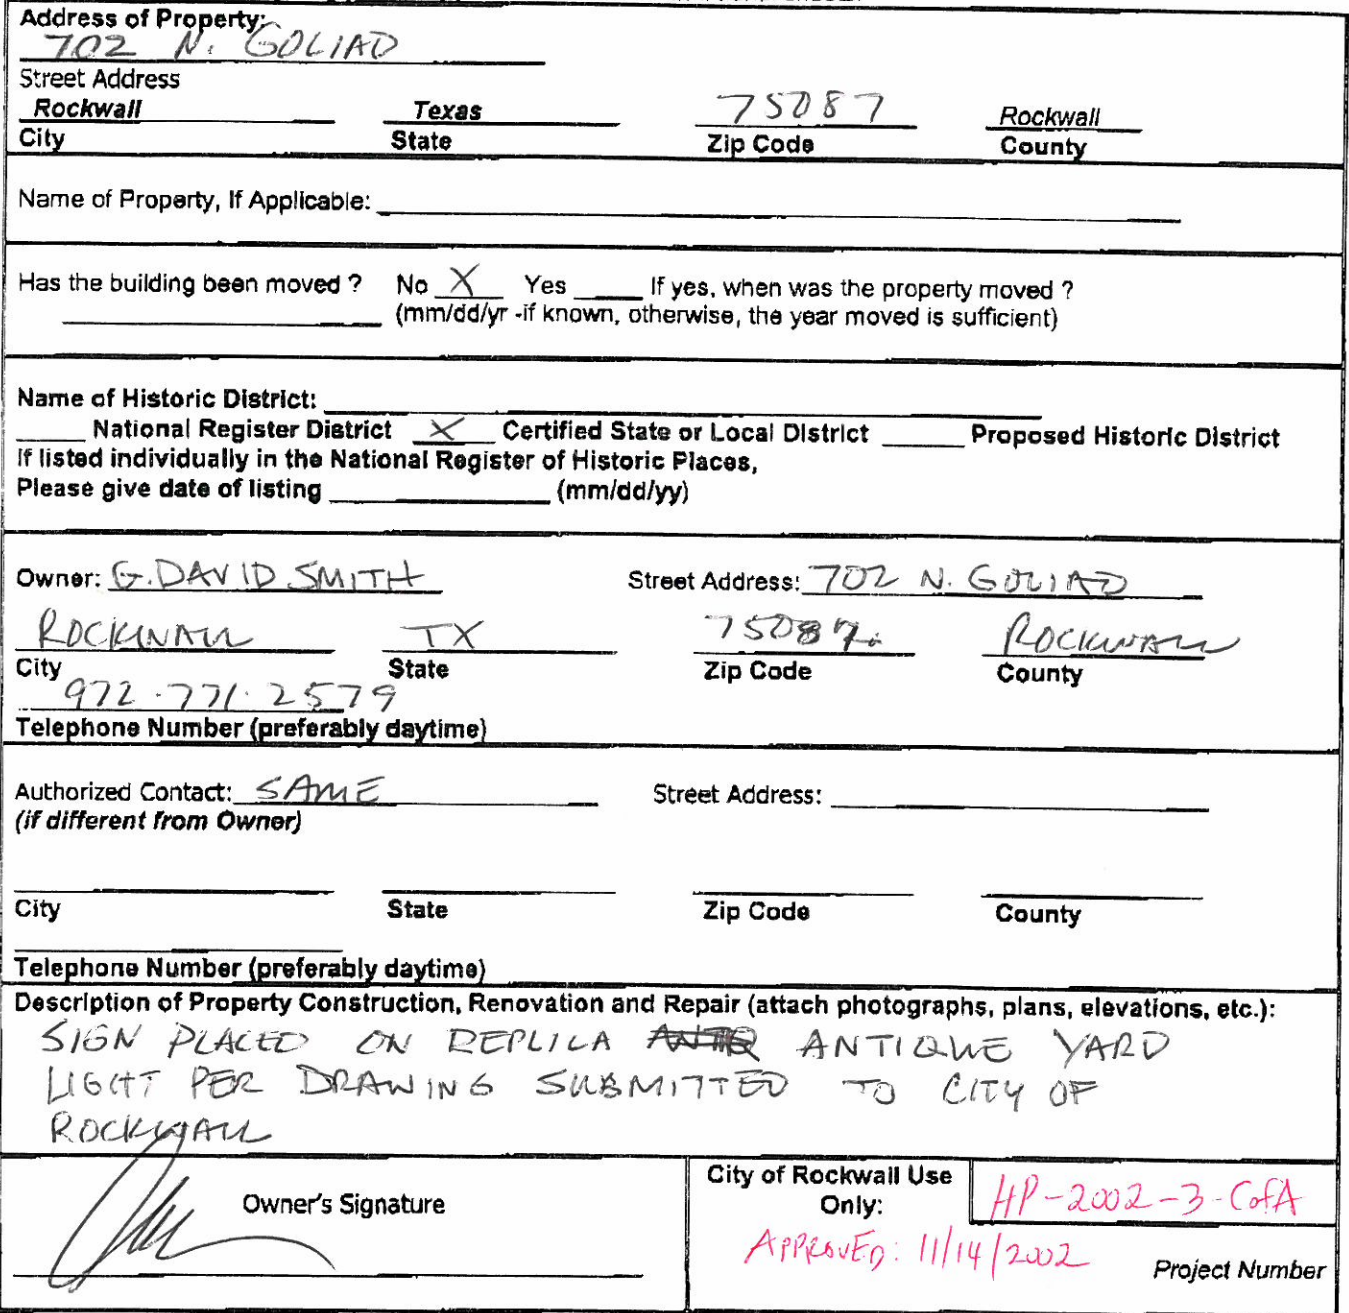 Address of Property:
702 N. GOLIAD
Street Address
Rockwall Texas 75087 Rockwall
City State Zip Code County
Name of Property, If Applicable:
Has the building been moved ? No X Yes If yes, when was the property moved ?
(mm/dd/yr -if known, otherwise, the year moved is sufficient)
Name of Historic District:
National Register District X Certified State or Local District Proposed Historic District
If listed individually in the National Register of Historic Places,
Please give date of listing (mm/dd/yy)
Owner: G. DAVID SMITH Street Address: 702 N. GOLIAD
ROCKWALL TX 75087 ROCKWALL
City State Zip Code County
972.771.2579
Telephone Number (preferably daytime)
Authorized Contact: SAME Street Address:
(if different from Owner)
City State Zip Code County
Telephone Number (preferably daytime)
Description of Property Construction, Renovation and Repair (attach photographs, plans, elevations, etc.):
SIGN PLACED ON REPLICA ANTIQUE YARD
LIGHT PER DRAWING SUBMITTED TO CITY OF
ROCKWALL
Owner's Signature
City of Rockwall Use
Only:
HP-2002-3-CofA
APPROVED: 11/14/2002
Project Number